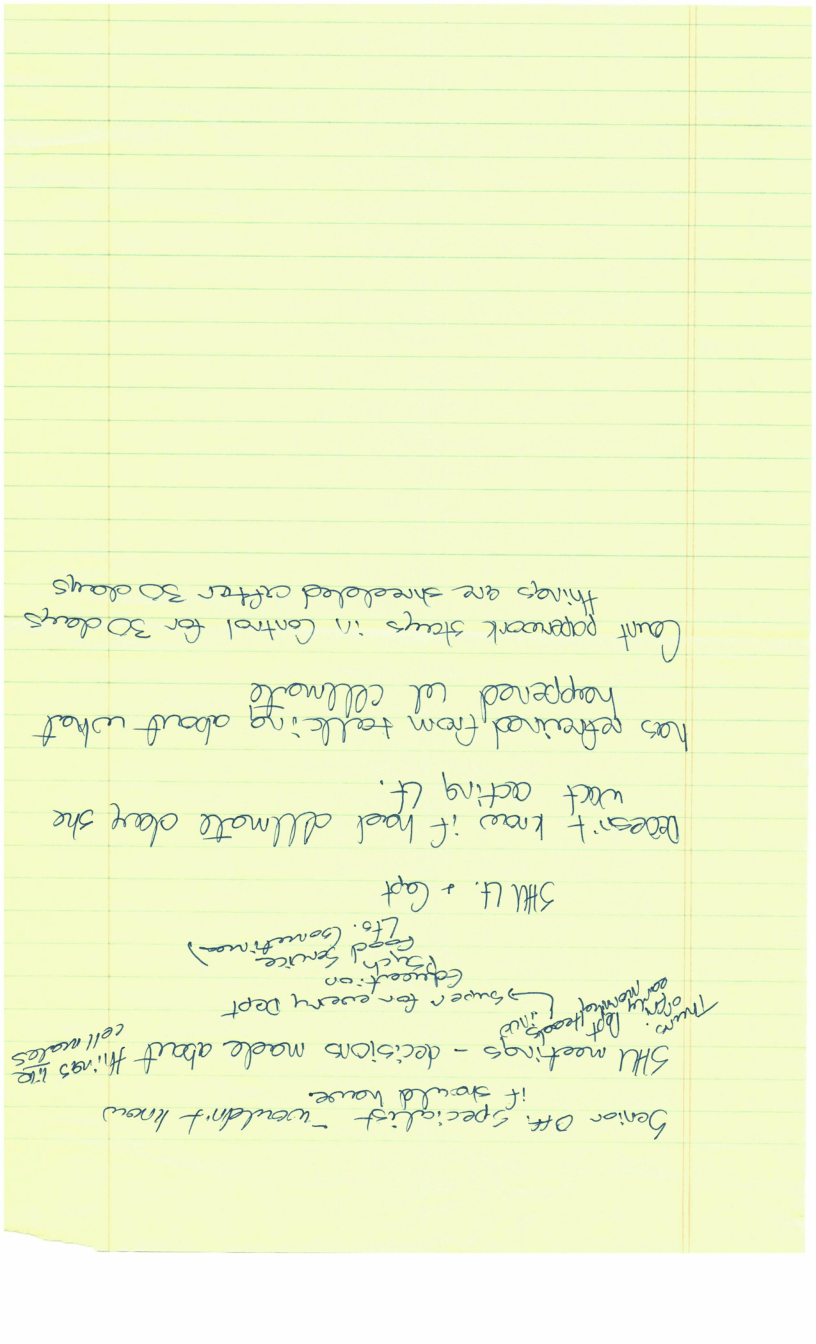 Senior Off. Specialist - wouldn't know
if should have.
SHU meetings - decisions made about things like
cell mates
Thurs.
Dept Heads
→ super for every Dept
Education
Psych
Food Service
Lts. (sometimes)
SHU Lt. + Capt
Doesn't know if had cellmate day she
was acting Lt.
has refrained from talking about what
happened w/ cellmate
Count paperwork stays in Control for 30 days
things are shredded after 30 days